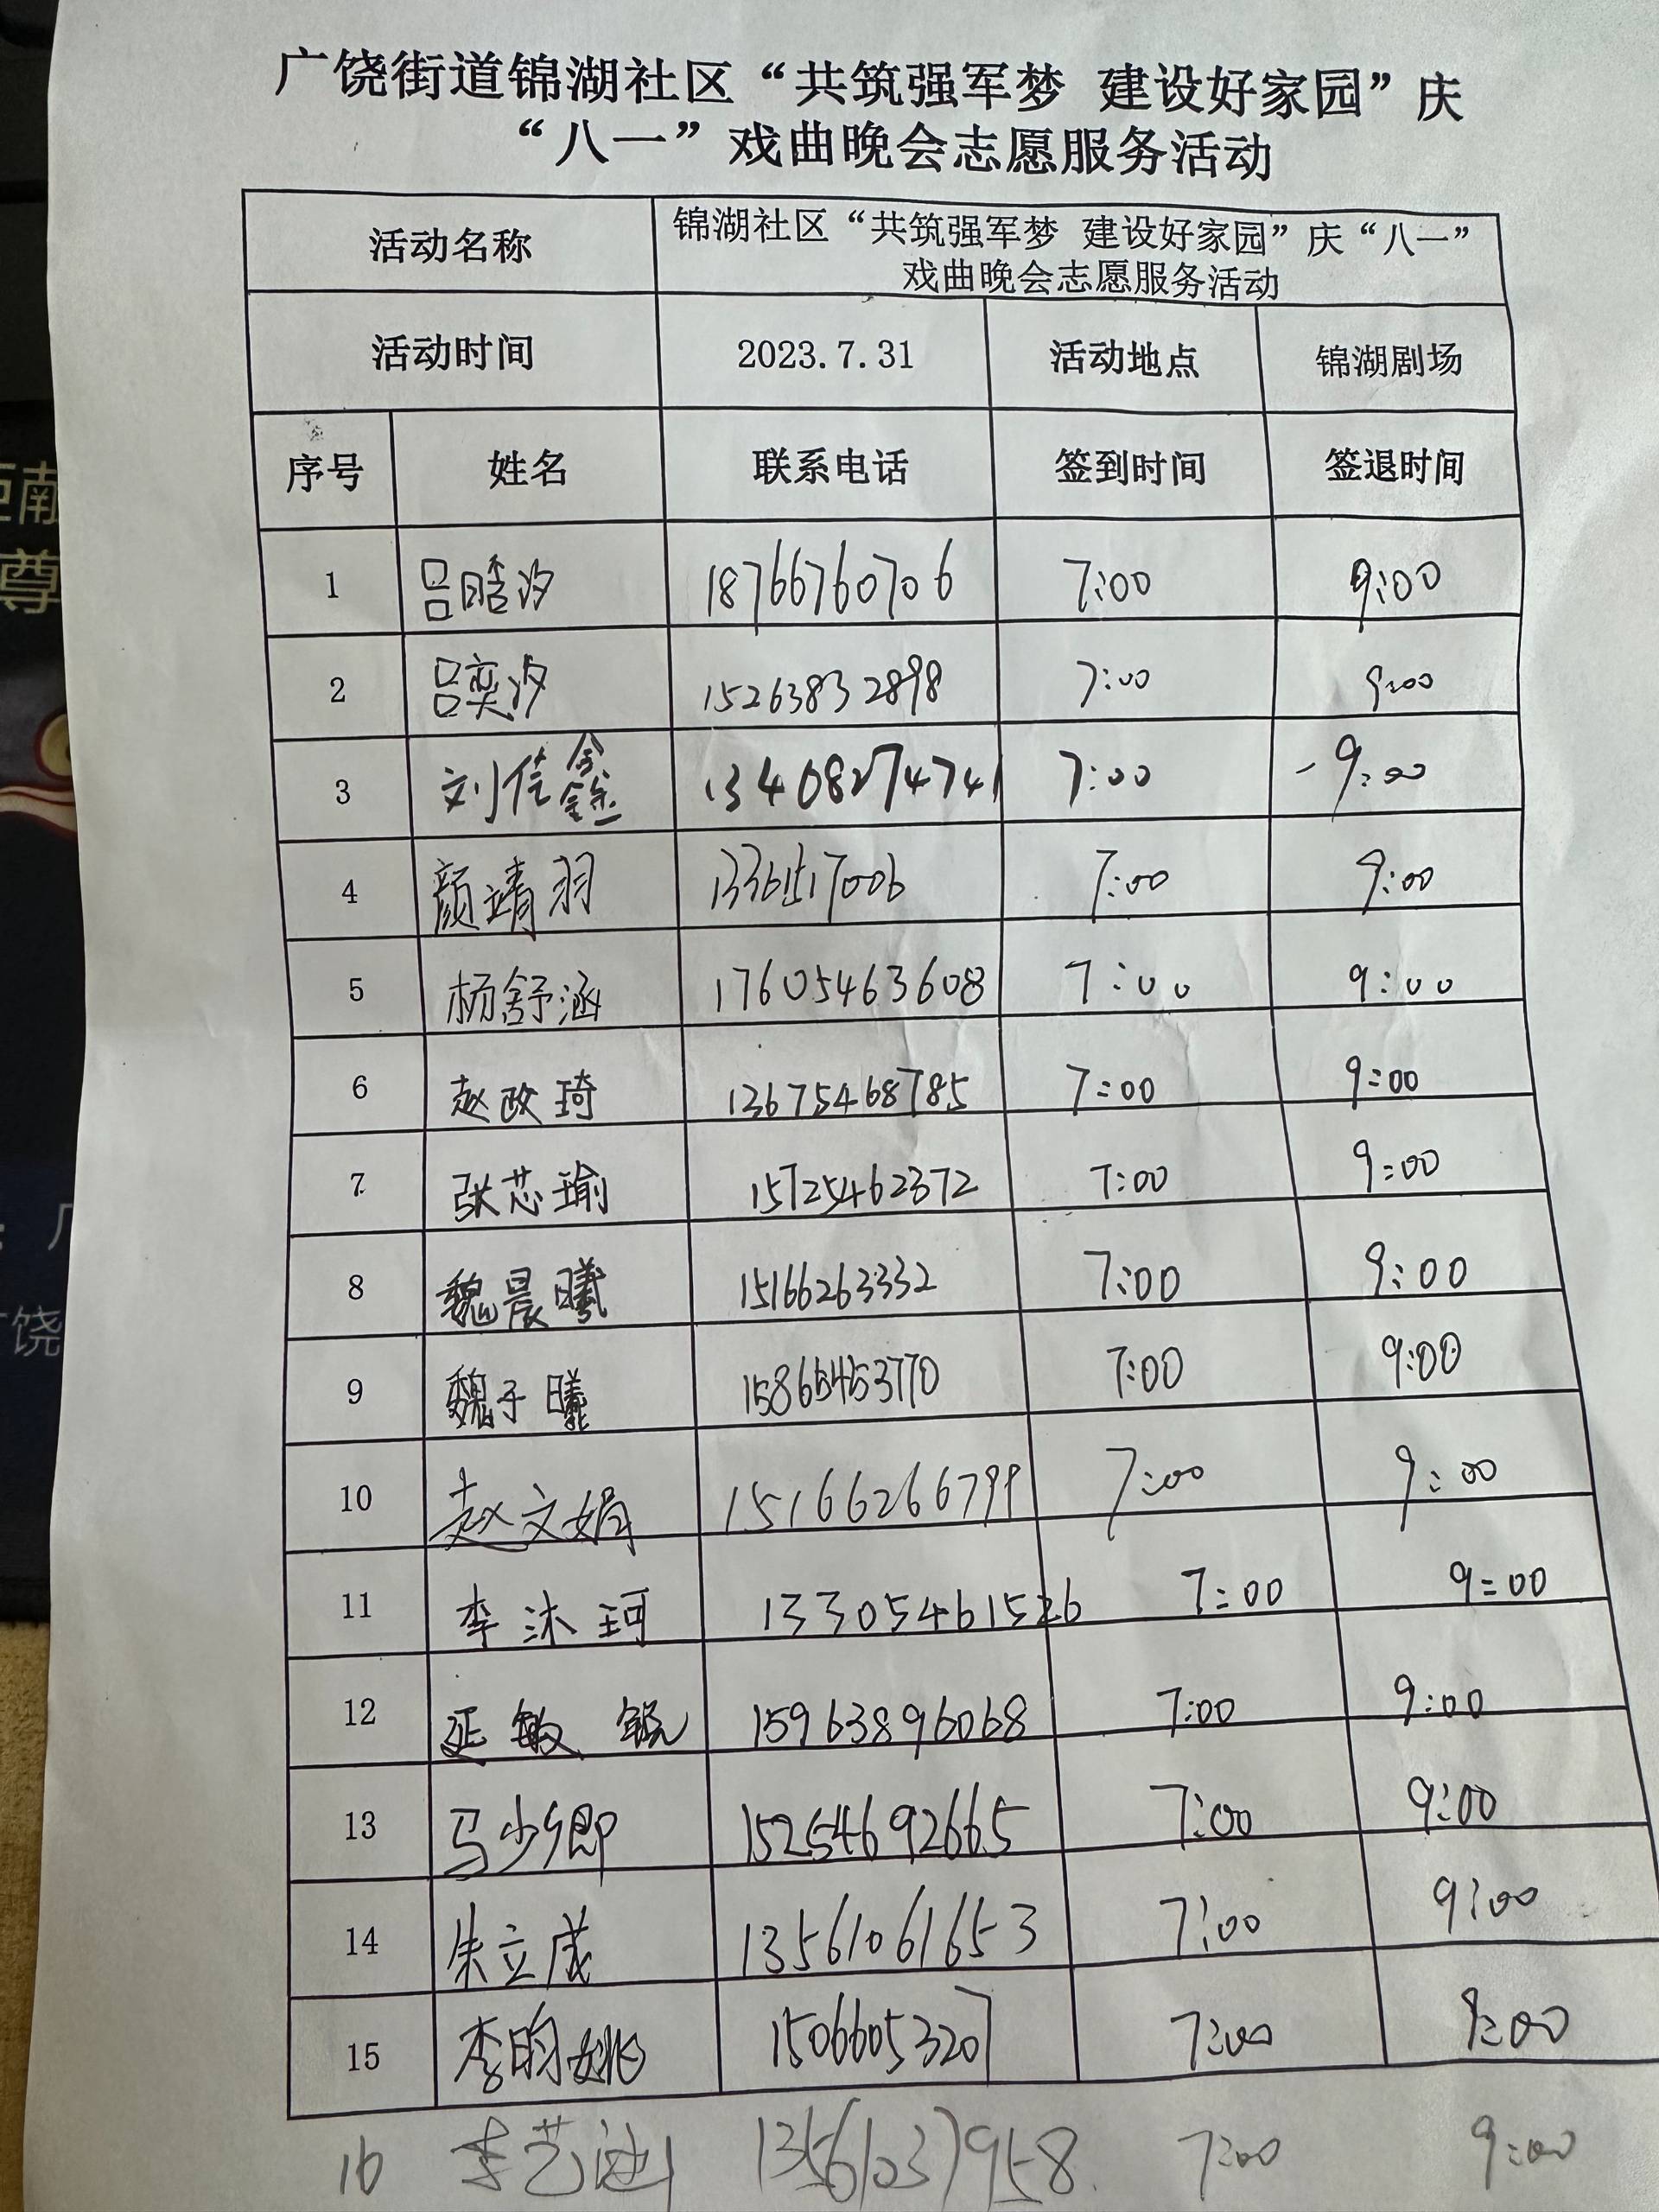 广饶街道锦湖社区“共筑强军梦 建设好家园”庆
“八一”戏曲晚会志愿服务活动
活动名称 锦湖社区“共筑强军梦 建设好家园”庆“八一”
戏曲晚会志愿服务活动
活动时间 2023.7.31 活动地点 锦湖剧场
序号 姓名 联系电话 签到时间 签退时间
1 吕晧汐 18766760706 7:00 9:00
2 吕奕汐 15263832898 7:00 9:00
3 刘信鑫 13408274741 7:00 9:00
4 颜靖羽 13361517006 7:00 9:00
5 杨舒涵 17605463608 7:00 9:00
6 赵政琦 13675468785 7:00 9:00
7 张芯瑜 15725462372 7:00 9:00
8 魏晨曦 15166263332 7:00 9:00
9 魏子曦 15865453770 7:00 9:00
10 赵文娟 15166266799 7:00 9:00
11 李沐珂 13305461526 7:00 9:00
12 延敏锐 15963896068 7:00 9:00
13 马少卿 15254692665 7:00 9:00
14 朱立成 13561061653 7:00 9:00
15 李昀姚 15066053207 7:00 9:00
16 李艺迪 13561037958 7:00 9:00
尊
饶